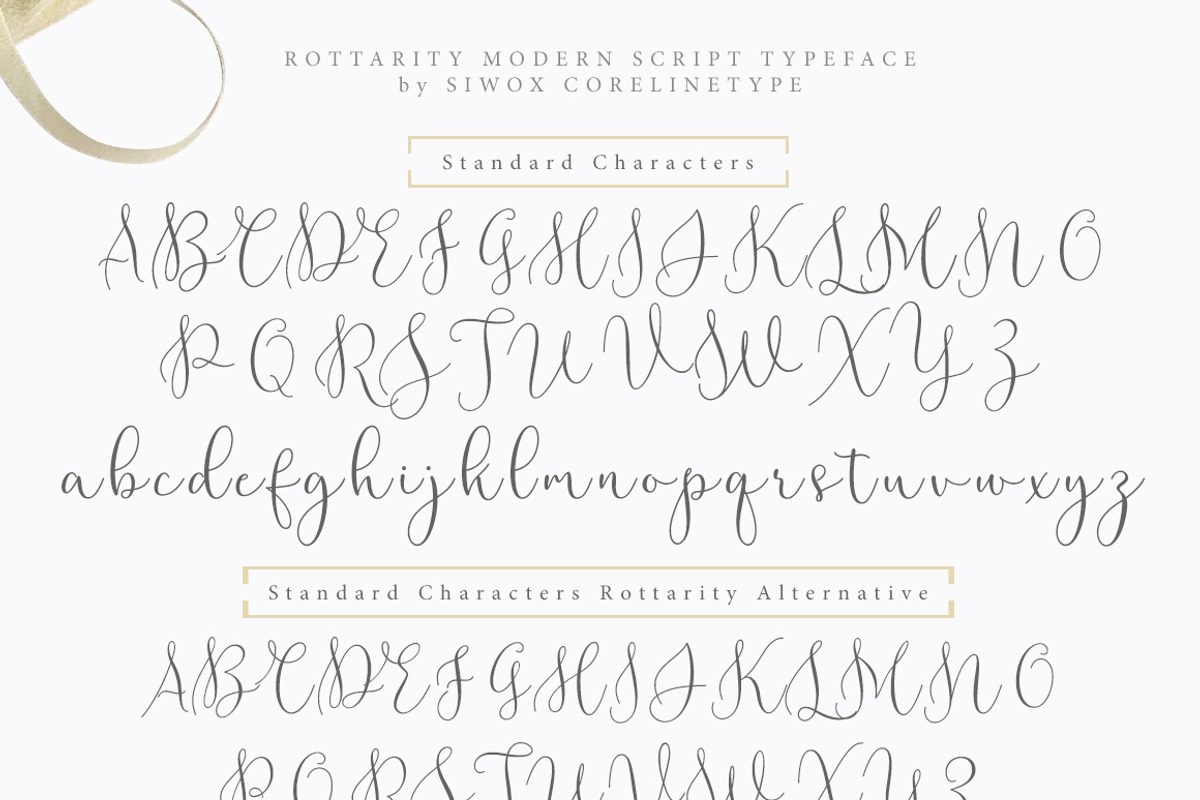 ROTTARITY MODERN SCRIPT TYPEFACE
by SIWOX CORELINETYPE
Standard Characters
ABCDEFGHIJKLMNO
PQRSTUVWXYZ
abcdefghijklmnopqrstuvwxyz
Standard Characters Rottarity Alternative
ABCDEFGHIJKLMNO
PQRSTUVWXYZ